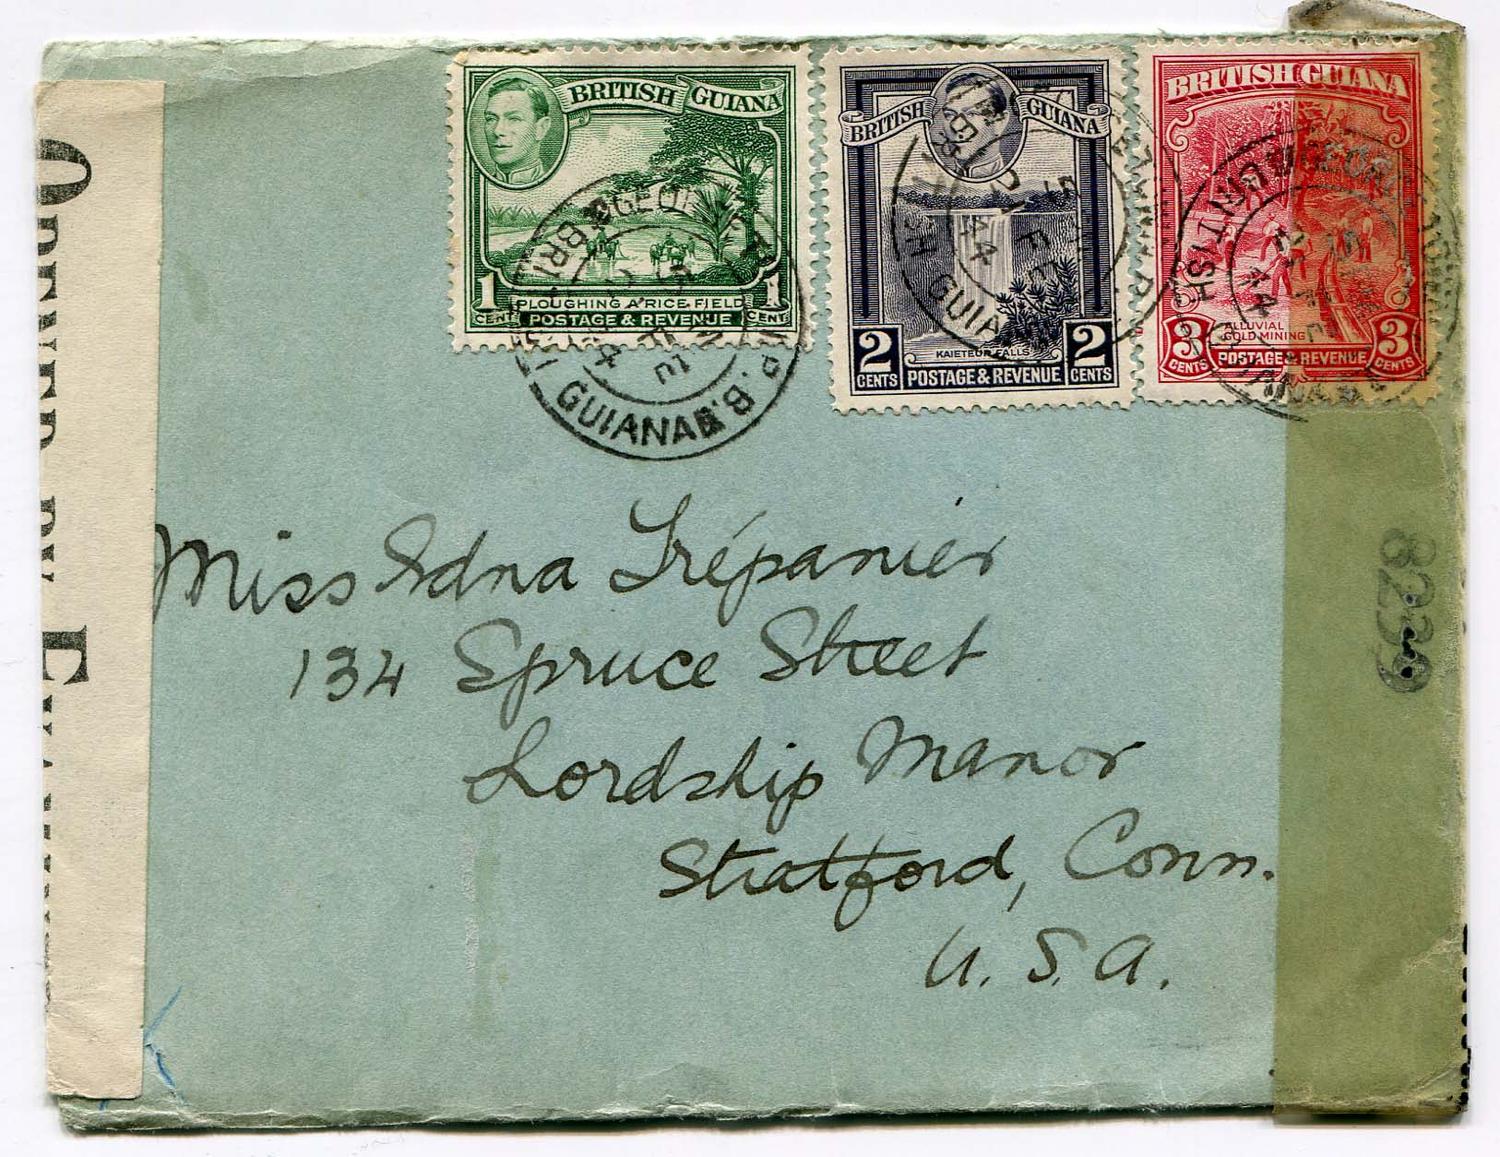 BRITISH GUIANA
1 CENT
1 CENT
PLOUGHING A RICE FIELD
POSTAGE & REVENUE
BRITISH GUIANA
KAIETEUR FALLS
2 CENTS
POSTAGE & REVENUE
2 CENTS
BRITISH GUIANA
ALLUVIAL
GOLD MINING
3 CENTS
POSTAGE & REVENUE
3 CENTS
GUIANA
BRITISH GUIANA
44
FE
BRITISH
44
OPENED BY
8239
Miss Edna Trépanier
134 Spruce Street
Lordship Manor
Stratford, Conn.
U. S. A.